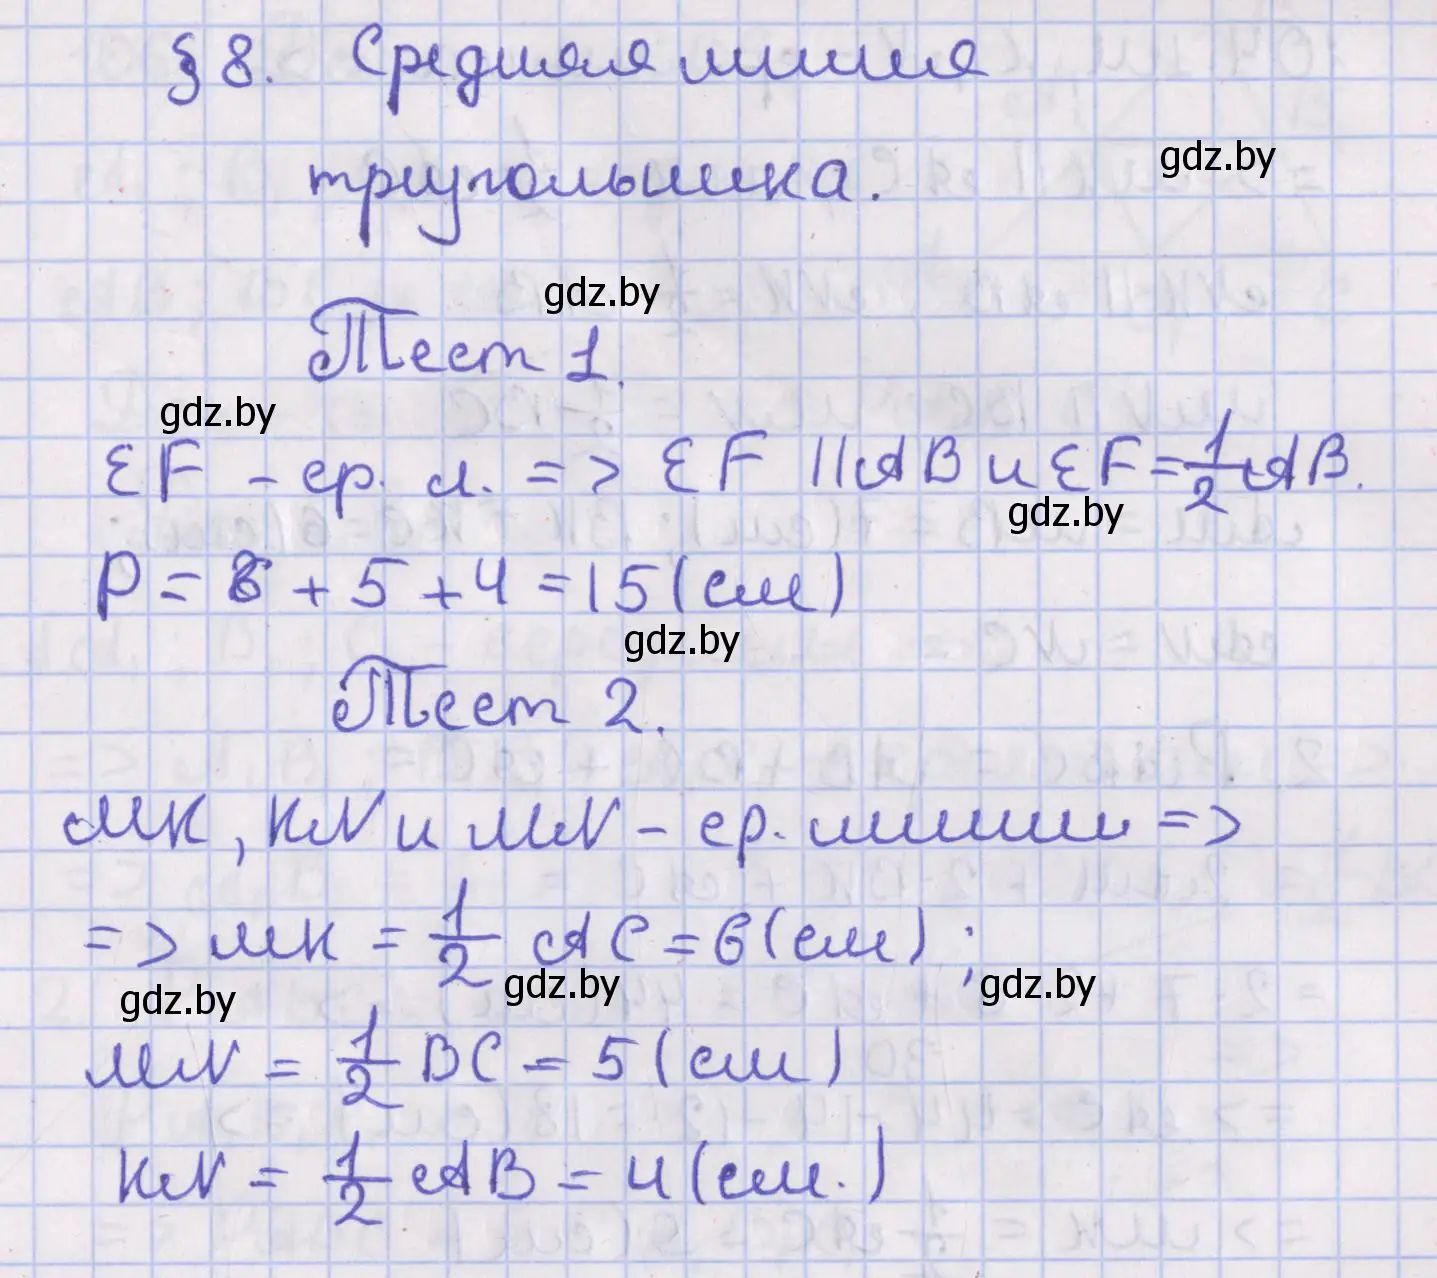 § 8. Средняя линия
треугольника.
gdz.by
gdz.by
Тест 1.
gdz.by
EF - ср. л. => EF || AB и EF = 1/2 AB.
gdz.by
P = 6 + 5 + 4 = 15 (см)
gdz.by
Тест 2.
MK, KN и MN - ср. линии =>
=> MK = 1/2 AC = 6 (см);
gdz.by gdz.by gdz.by
MN = 1/2 BC = 5 (см)
KN = 1/2 AB = 4 (см.)